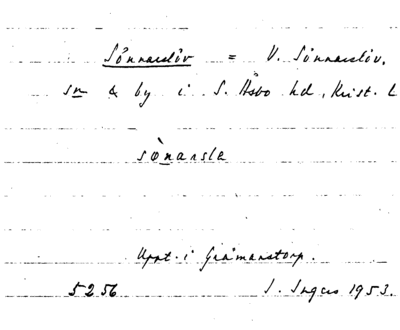 Sönnarslöv = V. Sönnarslöv,
sn & by i S. Åsbo hd, Krist. L
sònarsle
Uppt. i Gråmanstorp.
5256 I. Ingers 1953.